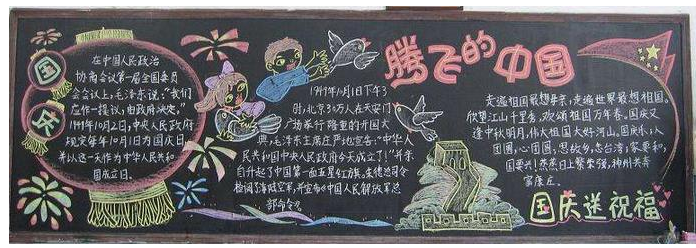 国
庆
在中国人民政治
协商会议第一届全国委员
会会议上,毛泽东说:"我们
应作一提议,由政府决定。"
1949年10月2日,中央人民政府
规定每年10月1日为国庆日
并以这一天作为中华人民共和
国成立日。
1949年10月1日下午3
时,北京30万人在天安门
广场举行隆重的开国大
典,毛泽东主席庄严地宣告:"中华人
民共和国中央人民政府今天成立了!"并亲
自升起了第一面五星红旗。
检阅了海陆空军,并宣布中国人民解放军总
部命令。
腾飞的中国
走遍祖国最想母亲,走遍世界最想祖国。
欣望江山千里秀,欢颂祖国万年春。国庆又
逢中秋明月,伟大祖国大好河山。国庆,人
团圆,心团圆,思故乡,念台湾,家要和,
国要兴!蒸蒸日上繁荣强,神州共奔
富康庄。
国庆送祝福